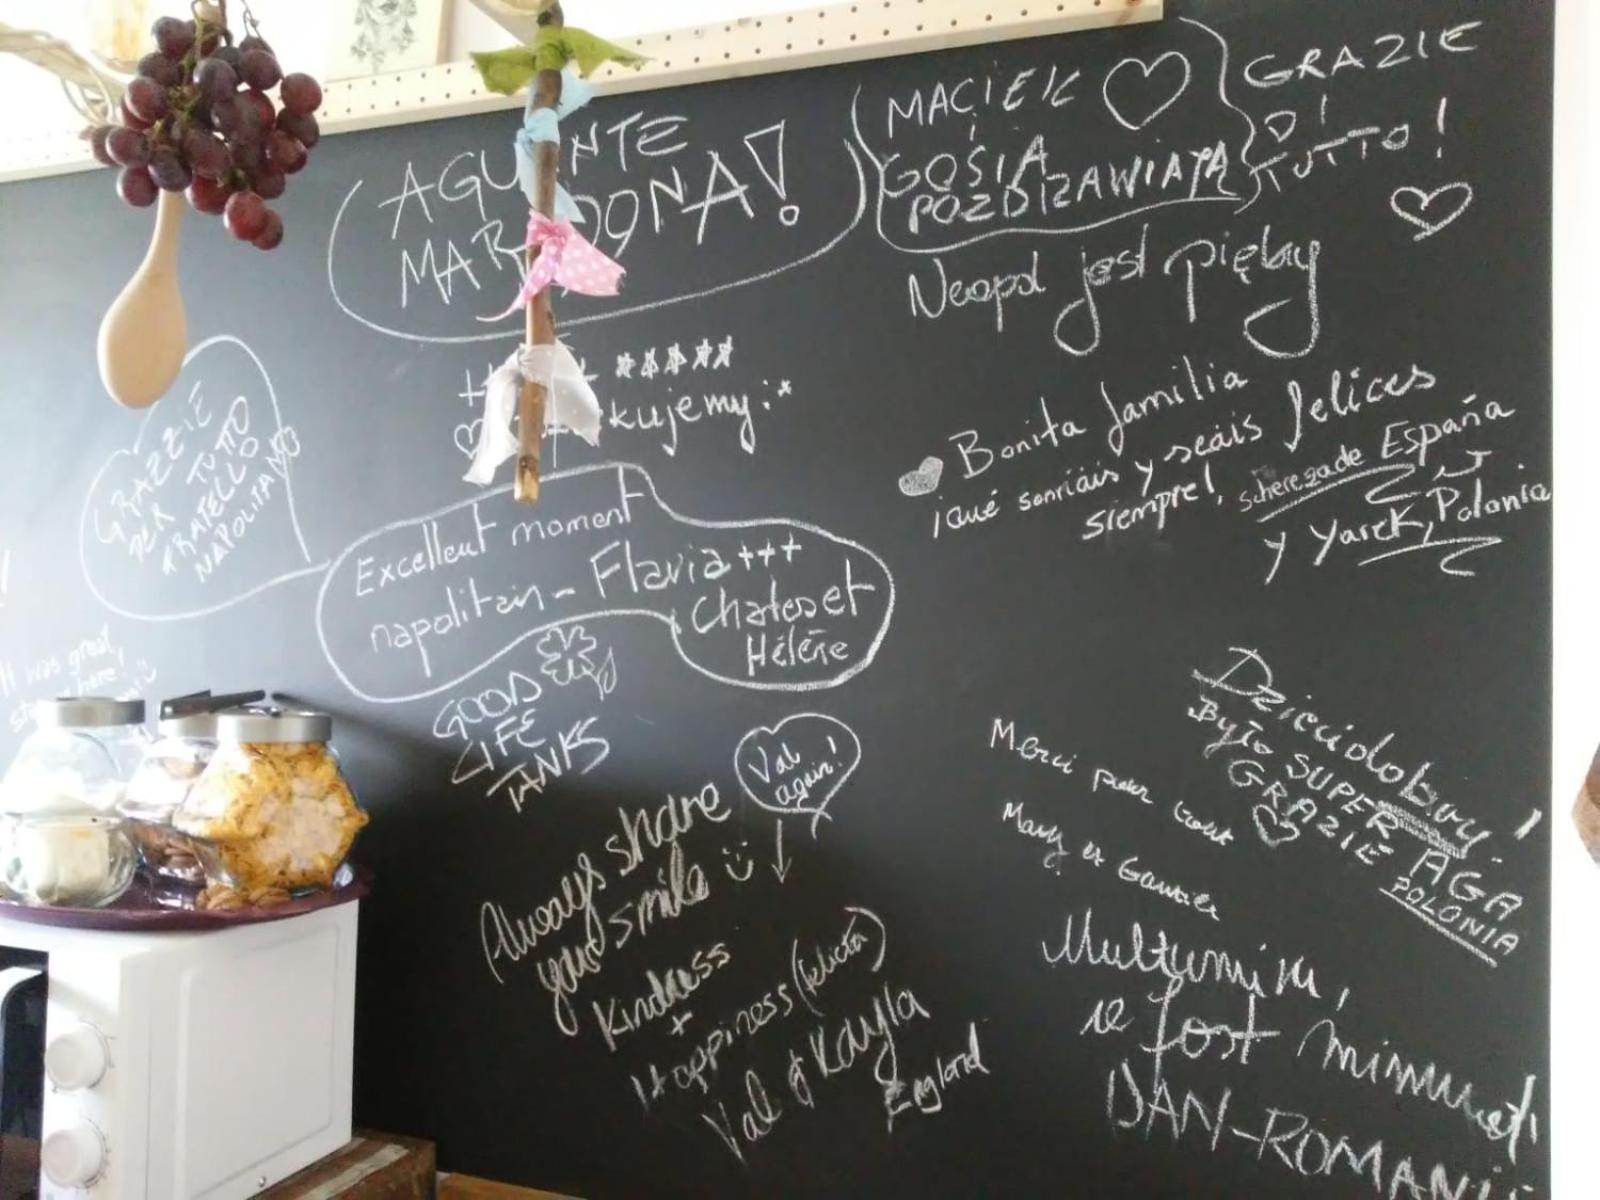 AGUANTE
MARADONA!
MACIEK
GOSIA
POZDRAWIAJĄ
GRAZIE
DI
TUTTO!
Neapol jest piękny
kujemy :*
GRAZZIE
PER TUTTO
FRATELLO
NAPOLITANO
Bonita familia
¡qué sonriáis y seáis felices
siempre!, scherezade España
y Yarek, Polonia
Excellent moment
napolitain - Flavia +++
et
Hélène
It was great
here!
GOOD
LIFE
TANKS
Val
again!
Always share
your smile
Kindness
+
Happiness (felicità)
Val & Kayla
England
Było SUPER
GRAZIE AGA
POLONIA
Merci pour tout
Mary et
Multumim,
a fost minunat!
DAN-ROMANI